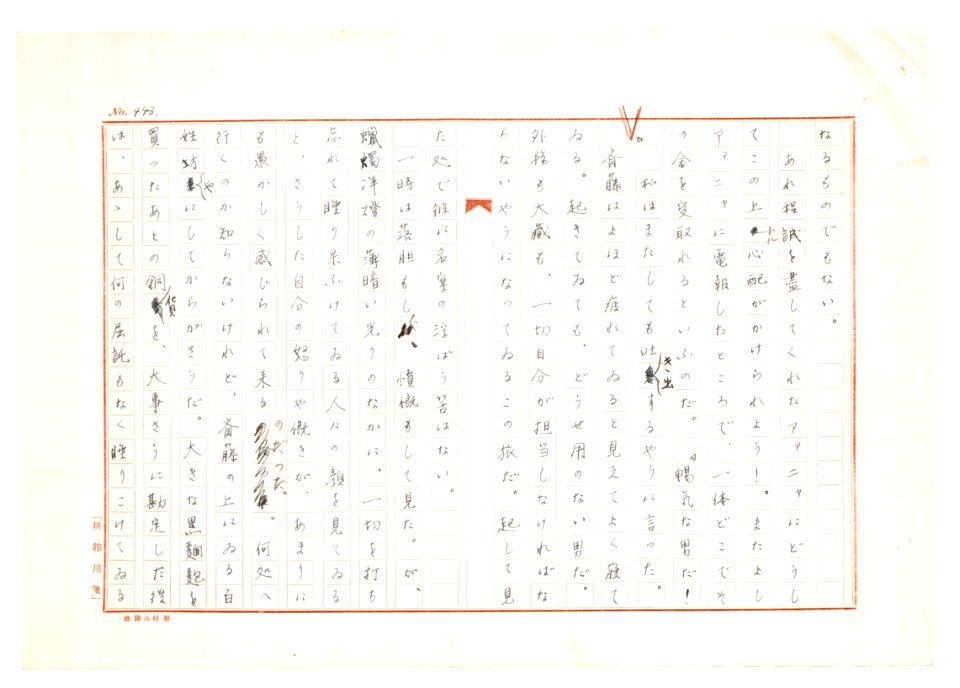 No. 443.
なるものでもない。
あれ程誠を盡してくれたアァニァにどうし
てこの上心配がかけられよう！。またよし
アァニァに電報したところで、一体どこでそ
の金を受取れるといふのだ。『暢気な男だ！
』私はまたしても吐き出すやうに言った。
斉藤はよほど疲れてゐると見えてよく寝て
ゐる。起きてゐても、どうせ用のない男だ。
外務も大藏も、一切自分が担当しなければな
らないやうになってゐるこの旅だ。起して見
た処で彼に名案の浮ばう筈はない。
一時は落胆もし、憤慨もして見た。が、
蠟燭洋燈の薄暗い光りのなかに、一切を打ち
忘れて睡り呆ふけてゐる人にの顔を見てゐる
と、さうした自分の怒りや慨きが、あまりに
も愚かしく感じられて来るのだった。何処へ
行くのか知らないけれど、斉藤の上にゐる百
姓坊やにしてからがさうだ。大きな黒麵麭を
買ったあとの銅貨を、大事さうに勘定した後
は、あゝして何の屈託もなく睡りこけてゐる